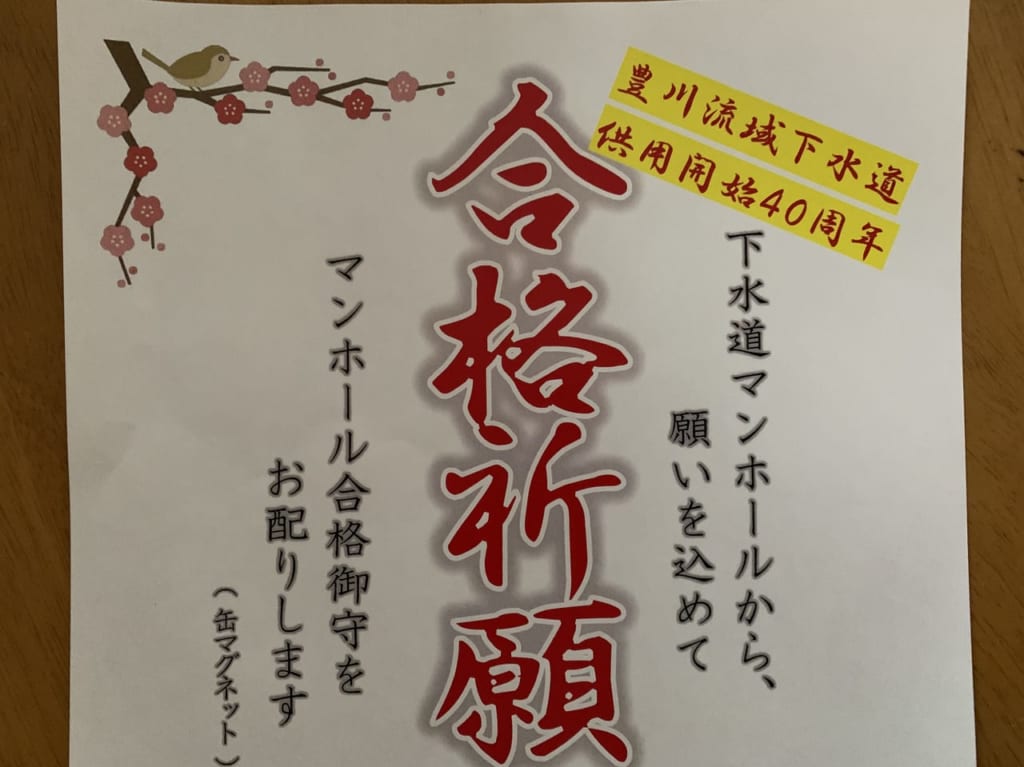 豊川流域下水道
供用開始40周年
下水道マンホールから、
願いを込めて
合格祈願
マンホール合格御守を
お配りします
(缶マグネット)